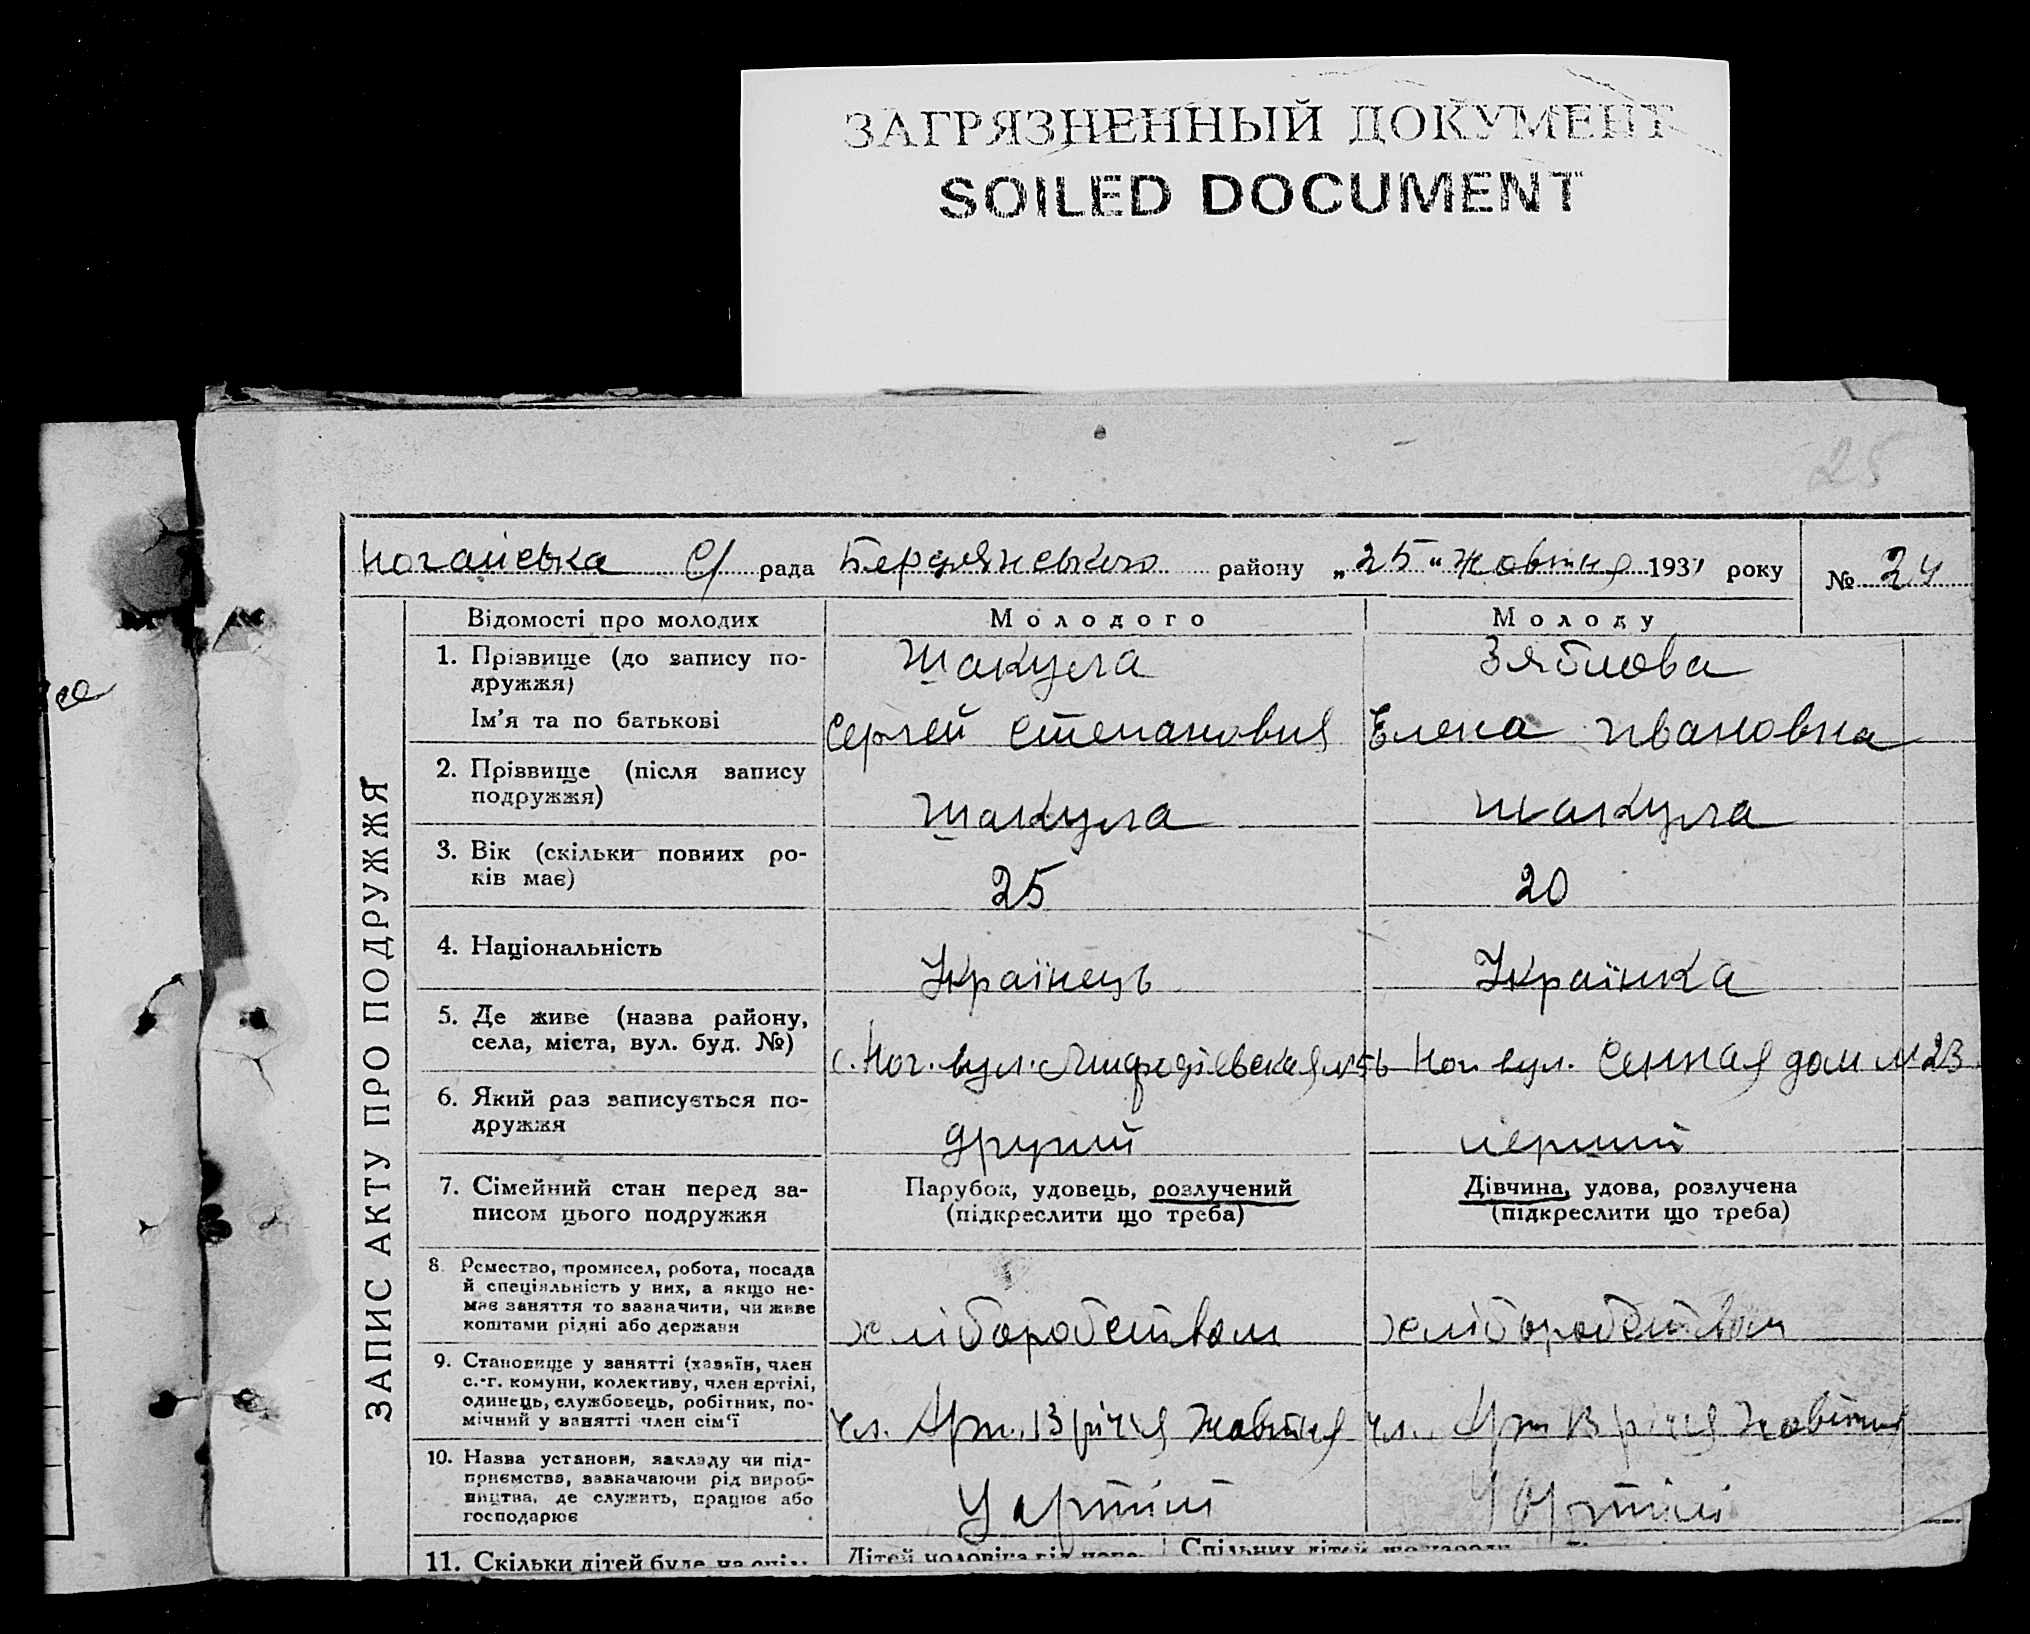 ЗАГРЯЗНЕННЫЙ ДОКУМЕНТ
SOILED DOCUMENT
25
Ногайська С/ рада Бердянського району „25“ жовтня 1931 року № 24
ЗАПИС АКТУ ПРО ПОДРУЖЖЯ
Відомості про молодих Молодого Молоду
1. Прізвище (до запису по- Шакула Зяблова
дружжя)
Ім'я та по батькові Сергей Степанович Елена Ивановна
2. Прізвище (після запису
подружжя) Шакула Шакула
3. Вік (скільки повних ро-
ків має) 25 20
4. Національність Українець Українка
5. Де живе (назва району,
села, міста, вул. буд. №) с. Ног. вул. Ног. вул. Сенная дом № 23
6. Який раз записується по-
дружжя другий перший
7. Сімейний стан перед за- Парубок, удовець, розлучений Дівчина, удова, розлучена
писом цього подружжя (підкреслити що треба) (підкреслити що треба)
8. Ремество, промисел, робота, посада
й спеціяльність у них, а якщо не-
має заняття то зазначити, чи живе
коштами рідні або держави хліборобством хліборобством
9. Становище у занятті (хазяїн, член
с.-г. комуни, колективу, член артілі,
одинець, службовець, робітник, по-
мічний у занятті член сім'ї чл. Арт. 13 річчя Жовтня чл. Арт 13 річчя Жовтня
10. Назва установи, закладу чи під-
приємства, зазначаючи рід вироб-
ництва, де служить, працює або
господарює У артілі У артілі
11. Скільки дітей буде на Дітей чоловіка від Спільних дітей